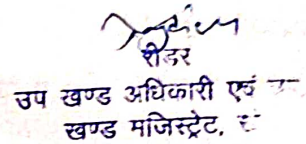 रीडर
उप खण्ड अधिकारी एवं
खण्ड मजिस्ट्रेट,